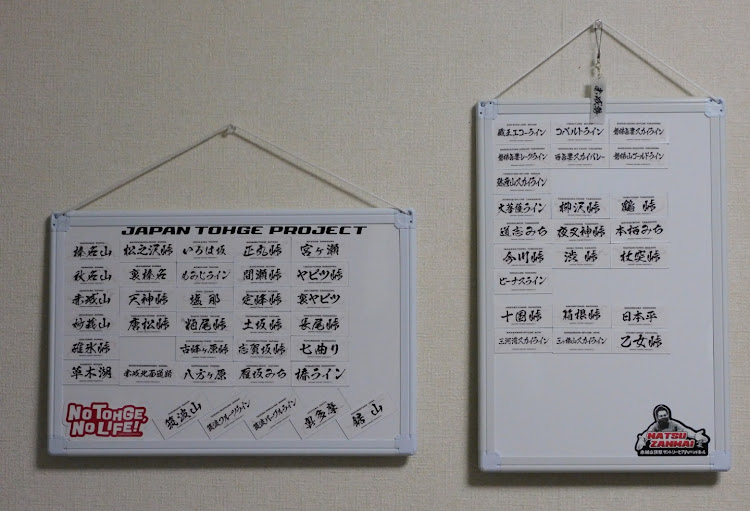 JAPAN TOHGE PROJECT
榛名山 松之沢峠 いろは坂 正丸峠 宮ヶ瀬
秋名山 裏榛名 もみじライン 間瀬峠 ヤビツ峠
赤城山 天神峠 塩那 定峰峠 裏ヤビツ
妙義山 唐松峠 粕尾峠 土坂峠 長尾峠
碓氷峠 古峰ヶ原峠 志賀坂峠 七曲り
草木湖 赤城北面道路 八方ヶ原 雁坂みち 椿ライン
NO TOHGE, NO LIFE!
筑波山 筑波フルーツライン 筑波パープルライン 奥多摩 鋸山
赤城山
蔵王エコーライン コバルトライン 磐梯吾妻スカイライン
磐梯吾妻レークライン 西吾妻スカイバレー 磐梯山ゴールドライン
大菩薩ライン 柳沢峠 鶴峠
道志みち 夜叉神峠 本栖みち
今川峠 渋峠 杖突峠
ビーナスライン
十国峠 箱根峠 日本平
三河湾スカイライン 三ヶ根山スカイライン 乙女峠
NATSU
ZANMAI